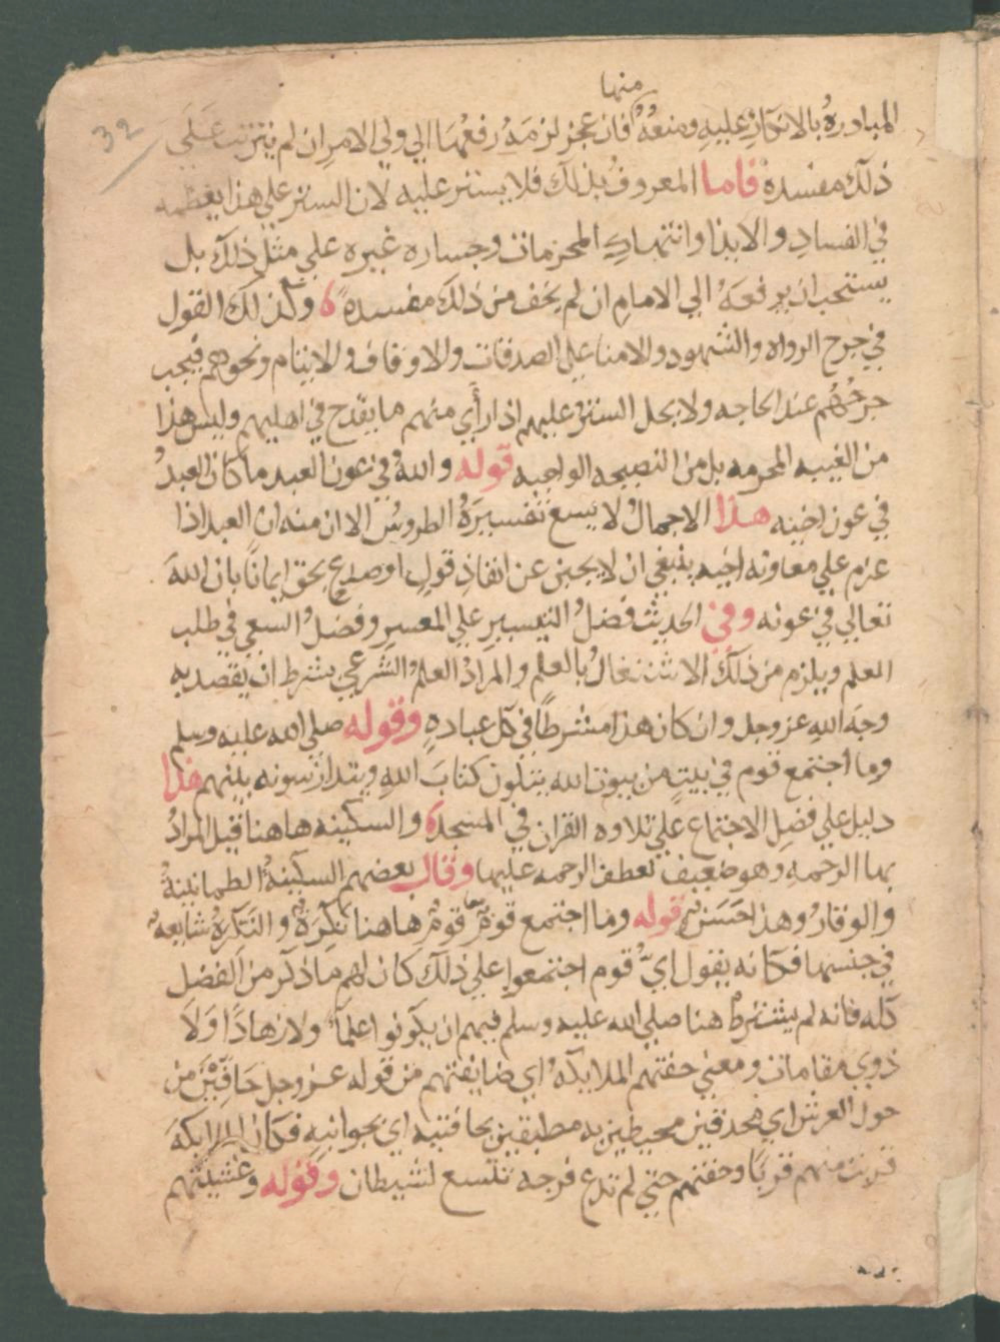 32
منها
المبادره بالانكار عليه ومنعه فان عجز لزمه رفعها الي ولي الامر ان لم يترتب علي
ذلك مفسدة فاما المعروف بذلك فلا يستتر عليه لان الستر علي هذا يغطمه
في الفساد والايذا وانتهاك المحرمات وجساره غيره علي مثل ذلك بل
يستحب ان يرفعه الي الامام ان لم يخف من ذلك مفسده وكذلك القول
في جرح الرواه والشهود والامنا علي الصدقات والاوقاف والايتام ونحوهم فيجب
جرحهم عند الحاجه ولا يحل الستر عليهم اذا رأي منهم ما يقدح في اهليهم وليس هذا
من الغيبه المحرمه بل من النصيحه الواجبه قوله والله في عون العبد ما كان العبد
في عون اخيه هذا الاجمال لا يسع تفسيره الطروس الا ان منه ان العبد اذا
عزم علي معاونه اخيه ينبغي ان لا يجبن عن انفاذ قول او صدع بحق ايمانا بان الله
تعالي في عونه وفي الحديث فضل التيسير علي المعسر وفضل السعي في طلب
العلم ويلزم من ذلك الاشتغال بالعلم والمراد العلم الشرعي بشرط ان يقصد به
وجه الله عز وجل وان كان هذا مشترطا في كل عباده وقوله صلي الله عليه وسلم
وما اجتمع قوم في بيت من بيوت الله يتلون كتاب الله ويتدارسونه بينهم هذا
دليل علي فضل الاجتماع علي تلاوه القران في المسجد والسكينه هاهنا قيل المراد
بها الرحمه وهو ضعيف لعطف الرحمه عليها وقال بعضهم السكينة الطمانينة
والوقار وهذا حسن قوله وما اجتمع قوم قوم هاهنا نكرة والنكرة شايعه
في جنسها فكانه يقول اي قوم اجتمعوا علي ذلك كان لهم ما ذكر من الفضل
كله فانه لم يشترط هنا صلي الله عليه وسلم فيهم ان يكونوا علما ولا زهادا ولا
ذوي مقامات ومعني حفتهم الملايكه اي ضايفتهم من قوله عز وجل حافين من
حول العرش اي محدقين محيطين به مطبقين بحافتيه اي بجوانبه فكان الملايكه
قربت منهم قربا وحفتهم حتي لم تدع فرجه تتسع لشيطان وقوله وغشيتهم